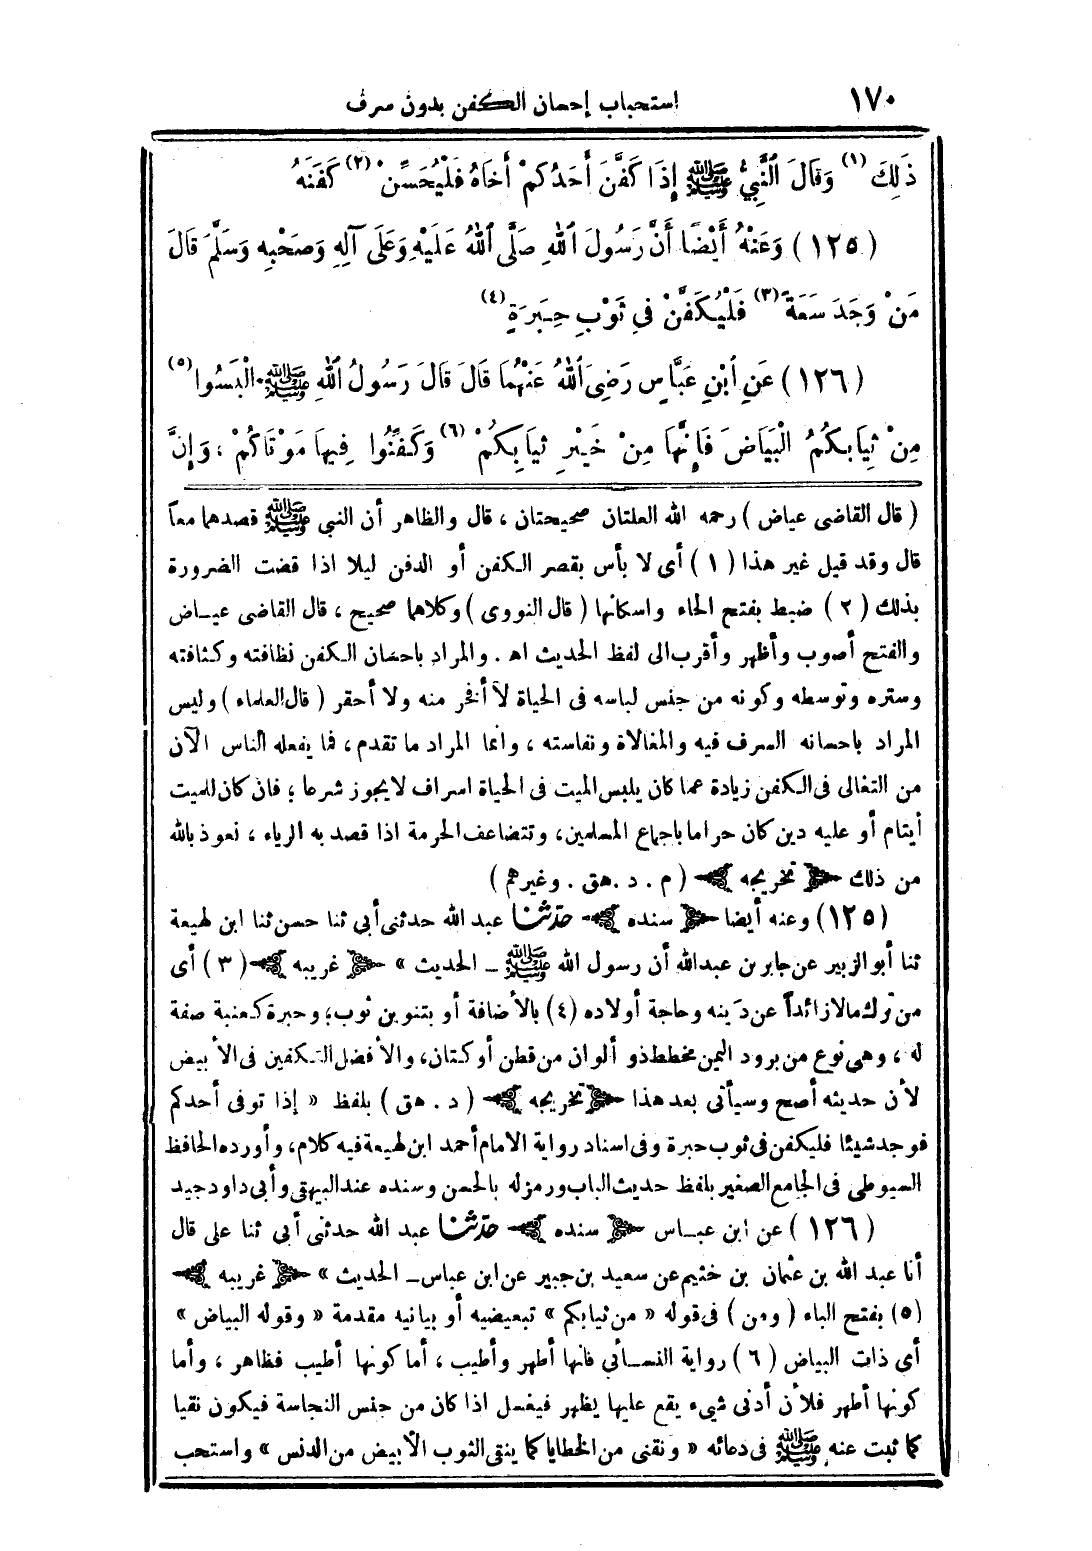 ١٧٠ استحباب إحسان الكفن بدون سرف
ذَلِكَ (١) وَقَالَ ٱلنَّبِيُّ ﷺ إِذَا كَفَّنَ أَحَدُكُمْ أَخَاهُ فَلْيُحَسِّنْ (٢) كَفَنَهُ
(١٢٥) وَعَنْهُ أَيْضًا أَنَّ رَسُولَ ٱللهِ صَلَّى ٱللهُ عَلَيْهِ وَعَلَى آلِهِ وَصَحْبِهِ وَسَلَّمَ قَالَ
مَنْ وَجَدَ سَعَةً (٣) فَلْيُكَفَّنْ فِي ثَوْبِ حِبَرَةٍ (٤)
(١٢٦) عَنِ ٱبْنِ عَبَّاسٍ رَضِيَ ٱللهُ عَنْهُمَا قَالَ قَالَ رَسُولُ ٱللهِ ﷺ الْبَسُوا (٥)
مِنْ ثِيَابِكُمُ الْبَيَاضَ فَإِنَّهَا مِنْ خَيْرِ ثِيَابِكُمْ (٦) وَكَفِّنُوا فِيهَا مَوْتَاكُمْ ، وَإِنَّ
( قال القاضى عياض ) رحمه الله العلتان صحيحتان ، قال والظاهر أن النبي ﷺ قصدهما معاً
قال وقد قيل غير هذا ( ١ ) أى لا بأس بقصر الكفن أو الدفن ليلا اذا قضت الضرورة
بذلك ( ٢ ) ضبط بفتح الحاء واسكانها ( قال النووى ) وكلاهما صحيح ، قال القاضى عياض
والفتح أصوب وأظهر وأقرب الى لفظ الحديث اهـ . والمراد باحسان الكفن نظافته وكثافته
وستره وتوسطه وكونه من جنس لباسه فى الحياة لا أفخر منه ولا أحقر ( قال العلماء ) وليس
المراد باحسانه السرف فيه والمغالاة ونفاسته ، وانما المراد ما تقدم ، فما يفعله الناس الآن
من التغالى فى الكفن زيادة عما كان يلبس الميت فى الحياة اسراف لا يجوز شرعا ؛ فان كان للميت
أيتام أو عليه دين كان حراما باجماع المسلمين، وتتضاعف الحرمة اذا قصد به الرياء ، نعوذ بالله
من ذلك ﴿ تخريجه ﴾ ( م . د . هق . وغيرهم )
(١٢٥) وعنه أيضا ﴿ سنده ﴾ حدثنا عبد الله حدثنى أبى ثنا حسن ثنا ابن لهيعة
ثنا أبو الزبير عن جابر بن عبد الله أن رسول الله ﷺ ــ الحديث » ﴿ غريبه ﴾ ( ٣ ) أى
من ترك مالا زائداً عن دينه وحاجة أولاده (٤) بالأضافة أو بتنوين ثوب؛ وحبرة كعنبة صفة
له ، وهى نوع من برود اليمن مخطط ذو ألوان من قطن أو كتان، والأفضل التكفين فى الأبيض
لأن حديثه أصح وسيأتى بعد هذا ﴿ تخريجه ﴾ ( د . هق ) بلفظ « إذا توفى أحدكم
فوجد شيئا فليكفن فى ثوب حبرة وفى اسناد رواية الامام أحمد ابن لهيعة فيه كلام، وأورده الحافظ
السيوطى فى الجامع الصغير بلفظ حديث الباب ورمز له بالحسن وسنده عند البيهقى وأبى داود جيد
( ١٢٦ ) عن ابن عباس ﴿ سنده ﴾ حدثنا عبد الله حدثنى أبى ثنا على قال
أنا عبد الله بن عثمان بن خثيم عن سعيد بن جبير عن ابن عباس ــ الحديث » ﴿ غريبه ﴾
(٥) بفتح الباء ( ومن ) فى قوله « من ثيابكم » تبعيضيه أو بيانيه مقدمة « وقوله البياض »
أى ذات البياض ( ٦ ) رواية النسائى فانها أطهر وأطيب ، أما كونها أطيب فظاهر ، وأما
كونها أطهر فلأن أدنى شيء يقع عليها يظهر فيغسل اذا كان من جنس النجاسة فيكون نقيا
كما ثبت عنه ﷺ فى دعائه « ونقنى من الخطايا كما ينقى الثوب الأبيض من الدنس » واستحب